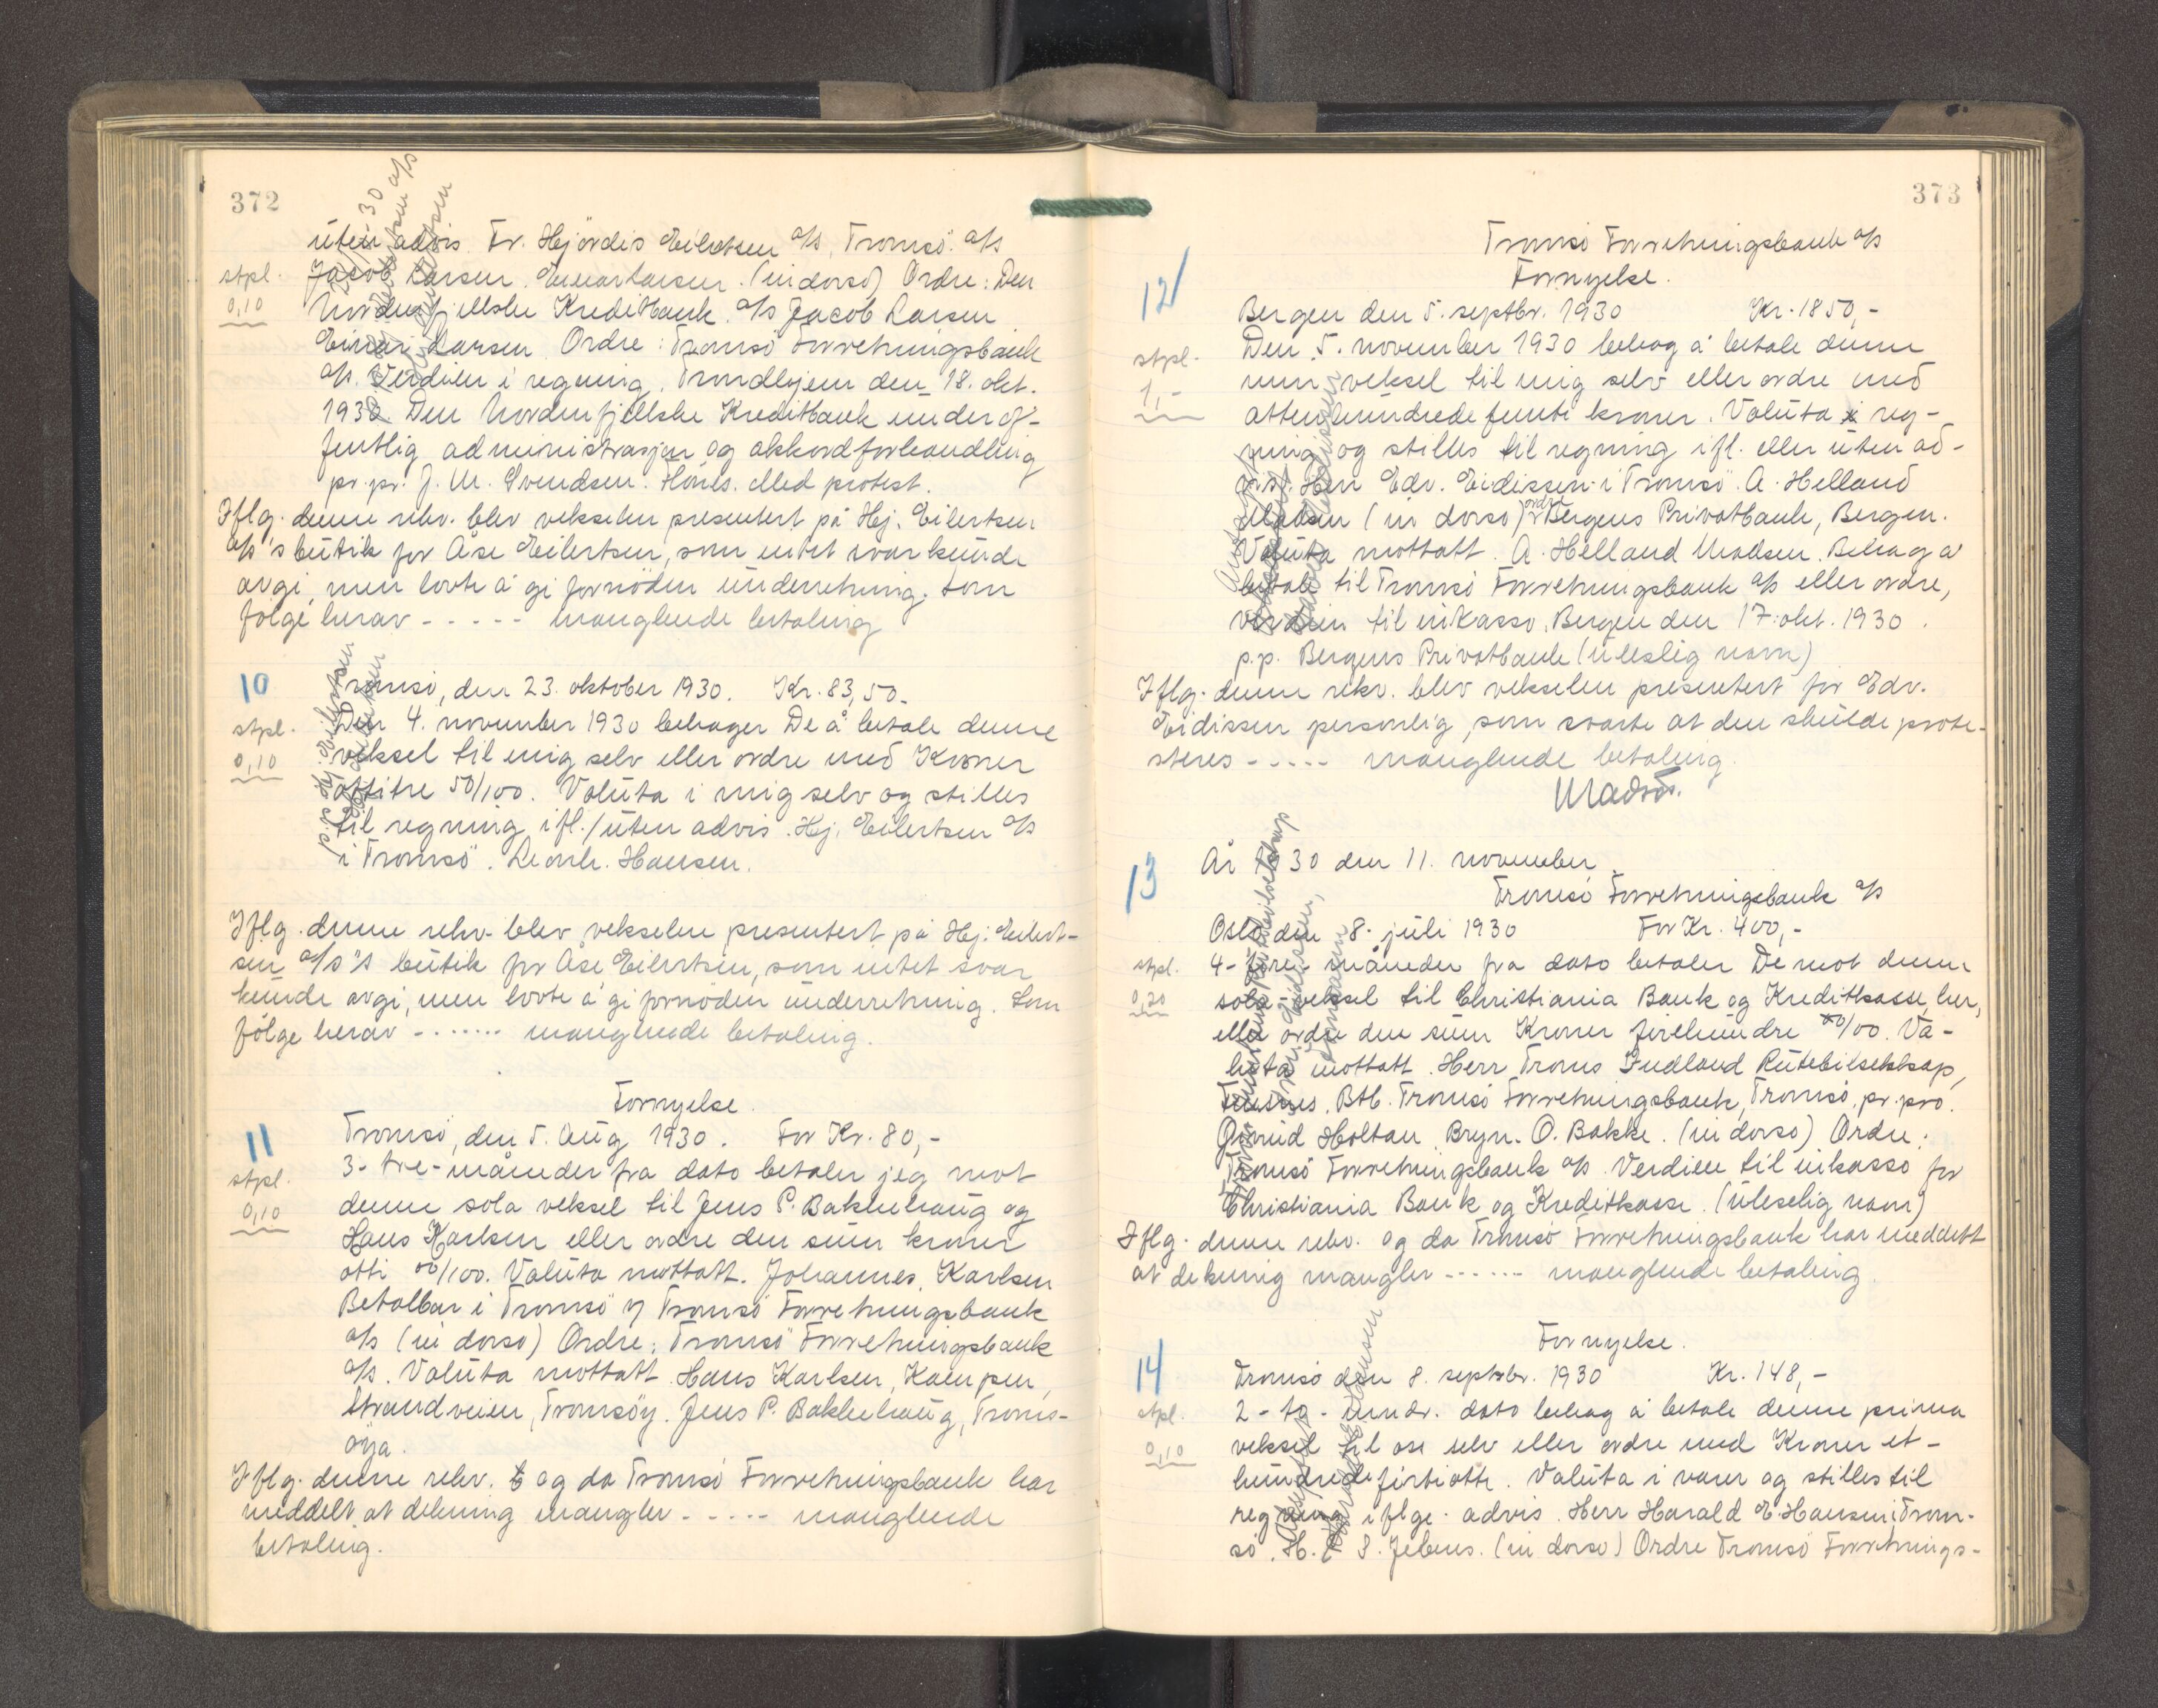 372
uten advis. Fr. Hjördis Eilertsen a/s, Tromsö. a/s
stpl. Jacob Larsen. Einar Larsen. (in dorso) Ordre: Den
0,10 Nordenfjellske Kreditbank. a/s Jacob Larsen
Einar Larsen. Ordre: Tromsö Forretningsbank
a/s. Verdien i regning. Trondhjem den 18. okt.
1930 Den Nordenfjellske Kreditbank under of-
fentlig administrasjon og akkordforhandling
pr. pr. J. M. Svendsen. Med protest.
Iflg. denne rekv. blev vekselen presentert på Hj. Eilertsen
a/s's butik for Åse Eilertsen, som intet svar kunde
avgi, men lovte å gi fornöden underretning. Som
fölge herav - - - - - manglende betaling
10 Tromsö, den 23. oktober 1930. Kr. 83,50.
stpl. Den 4. november 1930 behager De å betale denne
0,10 veksel til mig selv eller ordre med Kroner
ottitre 50/100. Valuta i mig selv og stilles
til regning ifl./uten advis. Hj. Eilertsen a/s
i Tromsö. Leonh. Hansen.
p.p. Hj. Eilertsen
Iflg. denne rekv. blev vekselen presentert på Hj. Eilert-
sen a/s's butik for Åse Eilertsen, som intet svar
kunde avgi, men lovte å gi fornöden underretning. Som
fölge herav - - - - - - - manglende betaling.
Fornyelse.
11 Tromsö, den 5. Aug 1930. For Kr. 80,-
stpl. 3- tre- måneder fra dato betaler jeg mot
0,10 denne sola veksel til Jens P. Bakkehaug og
Hans Karlsen eller ordre den sum kroner
otti 00/100. Valuta mottatt. Johannes Karlsen
Betalbar i Tromsö i Tromsö Forretningsbank
a/s (in dorso) Ordre: Tromsö Forretningsbank
a/s. Valuta mottatt Hans Karlsen, Kæmpen,
Strandveien, Tromsöy. Jens P. Bakkehaug, Troms-
öya.
Iflg. denne rekv. og da Tromsö Forretningsbank har
meddelt at dekning mangler - - - - - manglende
betaling.
373
Tromsö Forretningsbank a/s
Fornyelse.
12 Bergen den 5. septbr. 1930 Kr. 1850,-
stpl. Den 5. november 1930 behag å betale denne
1,- min veksel til mig selv eller ordre med
attenhundrede femti kroner. Valuta i reg-
ning og stilles til regning ifl. eller uten ad-
vis. Herr Edv. Eidissen i Tromsö. A. Helland
Madsen (in dorso) ordre Bergens Privatbank, Bergen.
Valuta mottatt. A. Helland Madsen. Behag å
betale til Tromsö Forretningsbank a/s eller ordre,
verdien til inkasso. Bergen den 17. okt. 1930.
p.p. Bergens Privatbank (uleslig navn)
Iflg. denne rekv. blev vekselen presentert for Edv.
Eidissen personlig, som svarte at den skulde prote-
steres - - - - - manglende betaling.
13 År 1930 den 11. november
Tromsö Forretningsbank a/s
Oslo den 8. juli 1930 For Kr. 400,-
stpl. 4- fire- måneder fra dato betaler De mot denne
0,20 sola-veksel til Christiania Bank og Kreditkasse, her,
eller ordre den sum Kroner firehundre 00/00. Va-
luta mottatt. Herr Troms Indland Rutebilselskap,
Finsnes. Btb. Tromsö Forretningsbank, Tromsö. pr. pro.
Holtan Bryn. O. Bakke. (in dorso) Ordre:
Tromsö Forretningsbank a/s. Verdien til inkasso for
Christiania Bank og Kreditkasse. (uleselig navn)
Iflg. denne rekv. og da Tromsö Forretningsbank har meddelt
at dekning mangler - - - - - - manglende betaling
Fornyelse.
14 Tromsö den 8. septbr. 1930 Kr. 148,-
stpl. 2 - to - mndr. dato behag å betale denne prima
0,10 veksel til oss selv eller ordre med Kroner et-
hundrede förtiotte. Valuta i varer og stilles til
regning iflge. advis. Herr Harald E. Hansen i Trom-
sö. H. S. Jebens. (in dorso) Ordre Tromsö Forretnings-